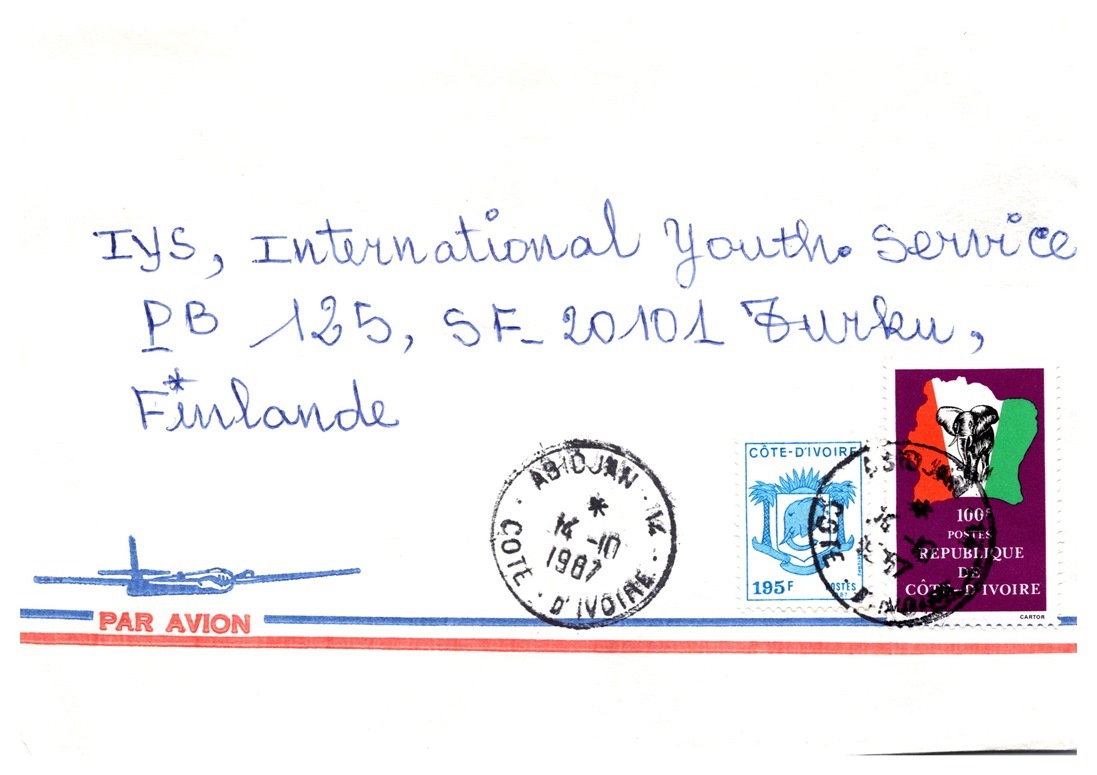 IYS, International Youth Service
PB 125, SF_ 20101 Turku,
Finlande
ABIDJAN · 14 ·
*
14 -10
1987
COTE · D'IVOIRE
CÔTE-D'IVOIRE
195F
POSTES
ABIDJAN
COTE · D'IVOIRE
100F
POSTES
REPUBLIQUE
DE
CÔTE-D'IVOIRE
CARTOR
PAR AVION